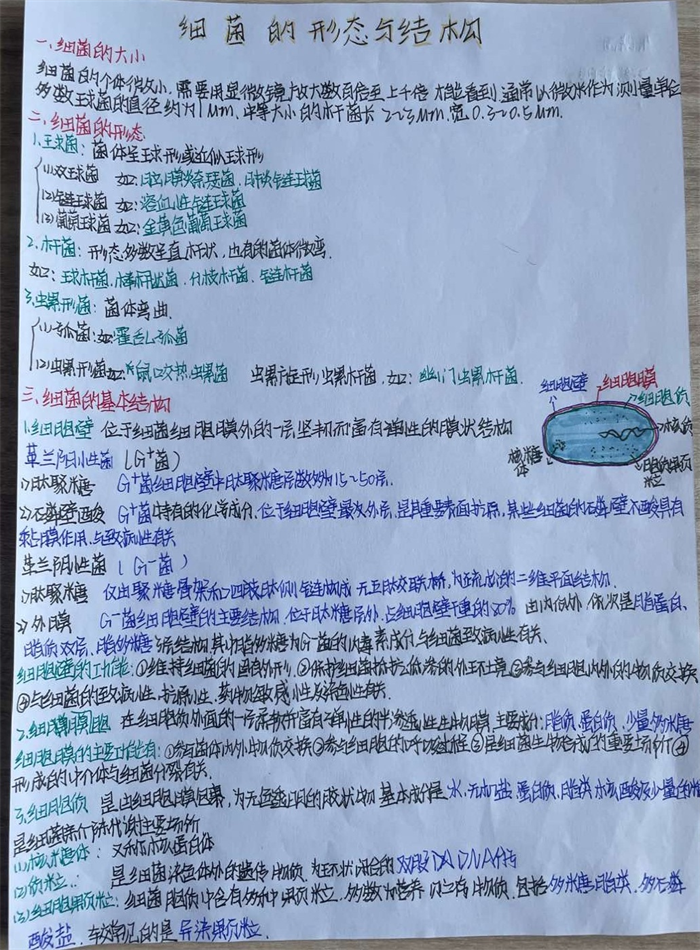 细菌的形态与结构
一、细菌的大小
细菌的个体很小,需要用显微镜放大数百倍至上千倍才能看到,通常以微米作为测量单位
多数球菌的直径约为1μm.中等大小的杆菌长2~3μm.宽0.3~0.5μm.
二、细菌的形态
1.球菌:菌体呈球形或近似球形
(1)双球菌 如:脑膜炎奈瑟菌、肺炎链球菌
(2)链球菌 如:溶血性链球菌
(3)葡萄球菌 如:金黄色葡萄球菌
2.杆菌:形态多数呈直杆状,也有的菌体微弯.
如:球杆菌、棒状菌、分枝杆菌、链杆菌
3.螺形菌:菌体弯曲.
(1)弧菌:如:霍乱弧菌
(2)螺形菌如:鼠咬热螺菌 螺旋形螺杆菌.如:幽门螺杆菌.
三、细菌的基本结构
细胞壁
细胞膜
细胞质
核质
核糖体
胞质颗粒
1.细胞壁 位于细菌细胞膜外的一层坚韧而富有弹性的膜状结构
革兰阳性菌(G⁺菌)
1)肽聚糖 G⁺菌细胞壁中肽聚糖层数多为15~50层.
2)石磷壁酸 G⁺菌特有的化学成分,位于细胞壁最外层,是其重要表面抗原,某些细菌的石磷壁酸具有
黏膜作用,与致病性有关
革兰阴性菌(G⁻菌)
1)肽聚糖 仅由聚糖骨架和四肽侧链构成 无五肽交联桥,为疏松的二维平面结构.
2)外膜 G⁻菌细胞壁的主要结构,位于肽糖层外,占细胞壁干重的80% 由内向外 依次是脂蛋白、
脂质双层、脂多糖 结构,其中脂多糖为G⁻菌的内毒素成分,与细菌致病性有关.
细胞壁的功能:①维持细菌的固有外形,②保护细菌抵抗低渗的外环境③参与细胞内外的物质交换
④与细菌的致病性,抗原性,药物敏感性及 性有关.
2.细胞膜 在细胞质外面的一层柔软并富有弹性的半渗透性生物膜,主要成分:脂质、蛋白质、少量多糖
细胞膜的主要功能有:①参与菌体内外物质交换②参与细胞的呼吸过程③是细菌生物合成的重要场所④
形成的中介体与细菌分裂有关.
3.细胞质 是由细胞膜包裹,为无色透明的胶状物 基本成分是水、无机盐 蛋白质、脂类、核酸及少量的糖
是细菌新陈代谢主要场所
(1)核糖体:又称核蛋白体
(2)质粒: 是细菌染色体外的遗传物质,为环状闭合的双股DNA分子
(3)细胞质颗粒:细菌胞质中含有多种颗粒,多数为营养贮存物质,包括多糖、脂类、多磷
酸盐.较常见的是异染颗粒.